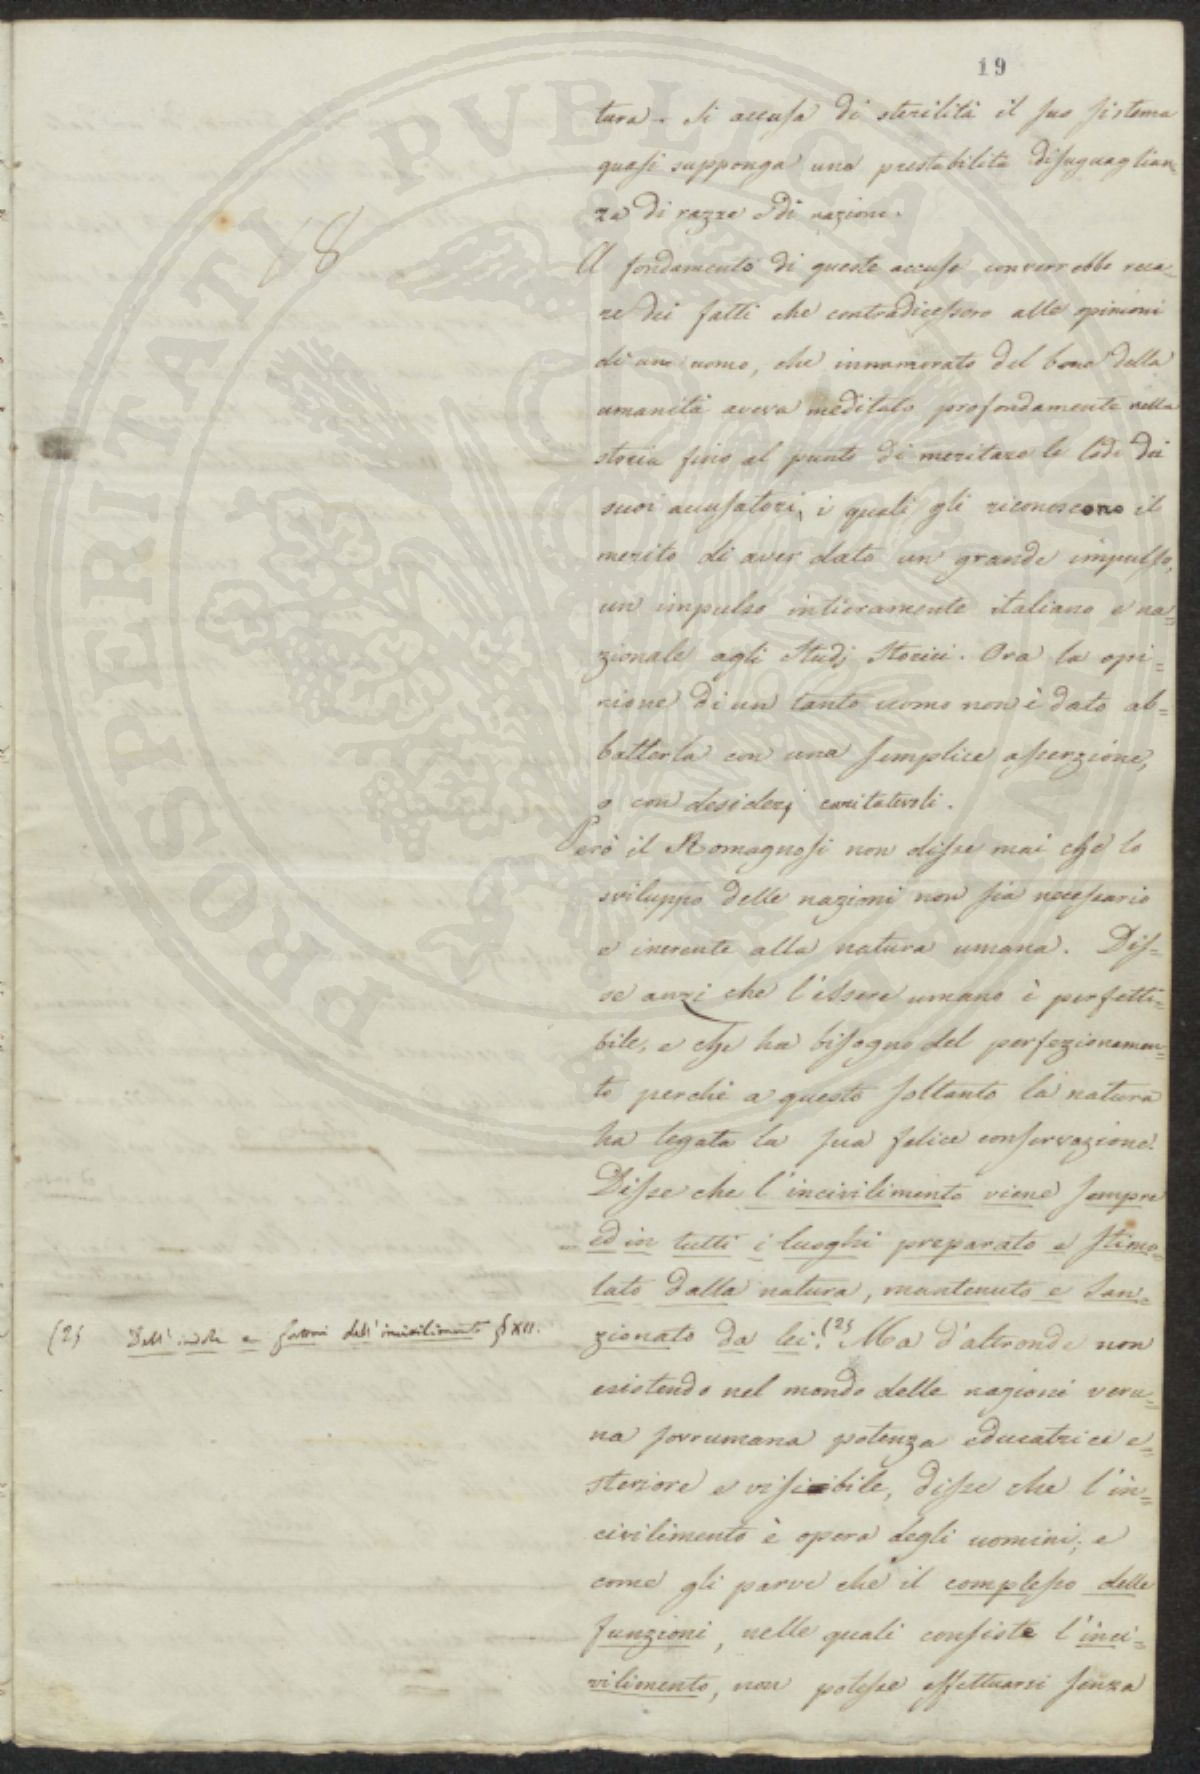 19
18
tura. Si accusa di sterilità il suo sistema
quasi supponga una prestabilita disuguaglian=
za di razze e di nazioni.
A fondamento di queste accuse converrebbe reca=
re dei fatti che contradicessero alle opinioni
di uno uomo, che innamorato del bene della
umanità aveva meditato profondamente nella
storia fino al punto di meritare le lodi dei
suoi accusatori, i quali gli riconoscono il
merito di aver dato un grande impulso,
un impulso intieramente italiano e na=
zionale agli Studj Storici. Ora la opi=
nione di un tanto uomo non è dato ab=
batterla con una semplice asserzione,
o con desiderj caritatevoli.
Però il Romagnosi non disse mai che lo
sviluppo delle nazioni non sia necessario
e inerente alla natura umana. Dis=
se anzi che l'essere umano è perfetti=
bile, e che ha bisogno del perfezionamen=
to perchè a questo soltanto la natura
ha legata la sua felice conservazione.
Disse che l'incivilimento viene sempre
ed in tutti i luoghi preparato e stimo=
lato dalla natura, mantenuto e san=
zionato da lei.(2) Ma d'altronde non
esistendo nel mondo delle nazioni veru=
na sovrumana potenza educatrice e=
steriore e visibile, disse che l'in=
civilimento è opera degli uomini; e
come gli parve che il complesso delle
funzioni, nelle quali consiste l'inci=
vilimento, non potesse effettuarsi senza
(2) Dell'indole e fattori dell'incivilimento § XII.
PROSPERITATI PVBLICAE